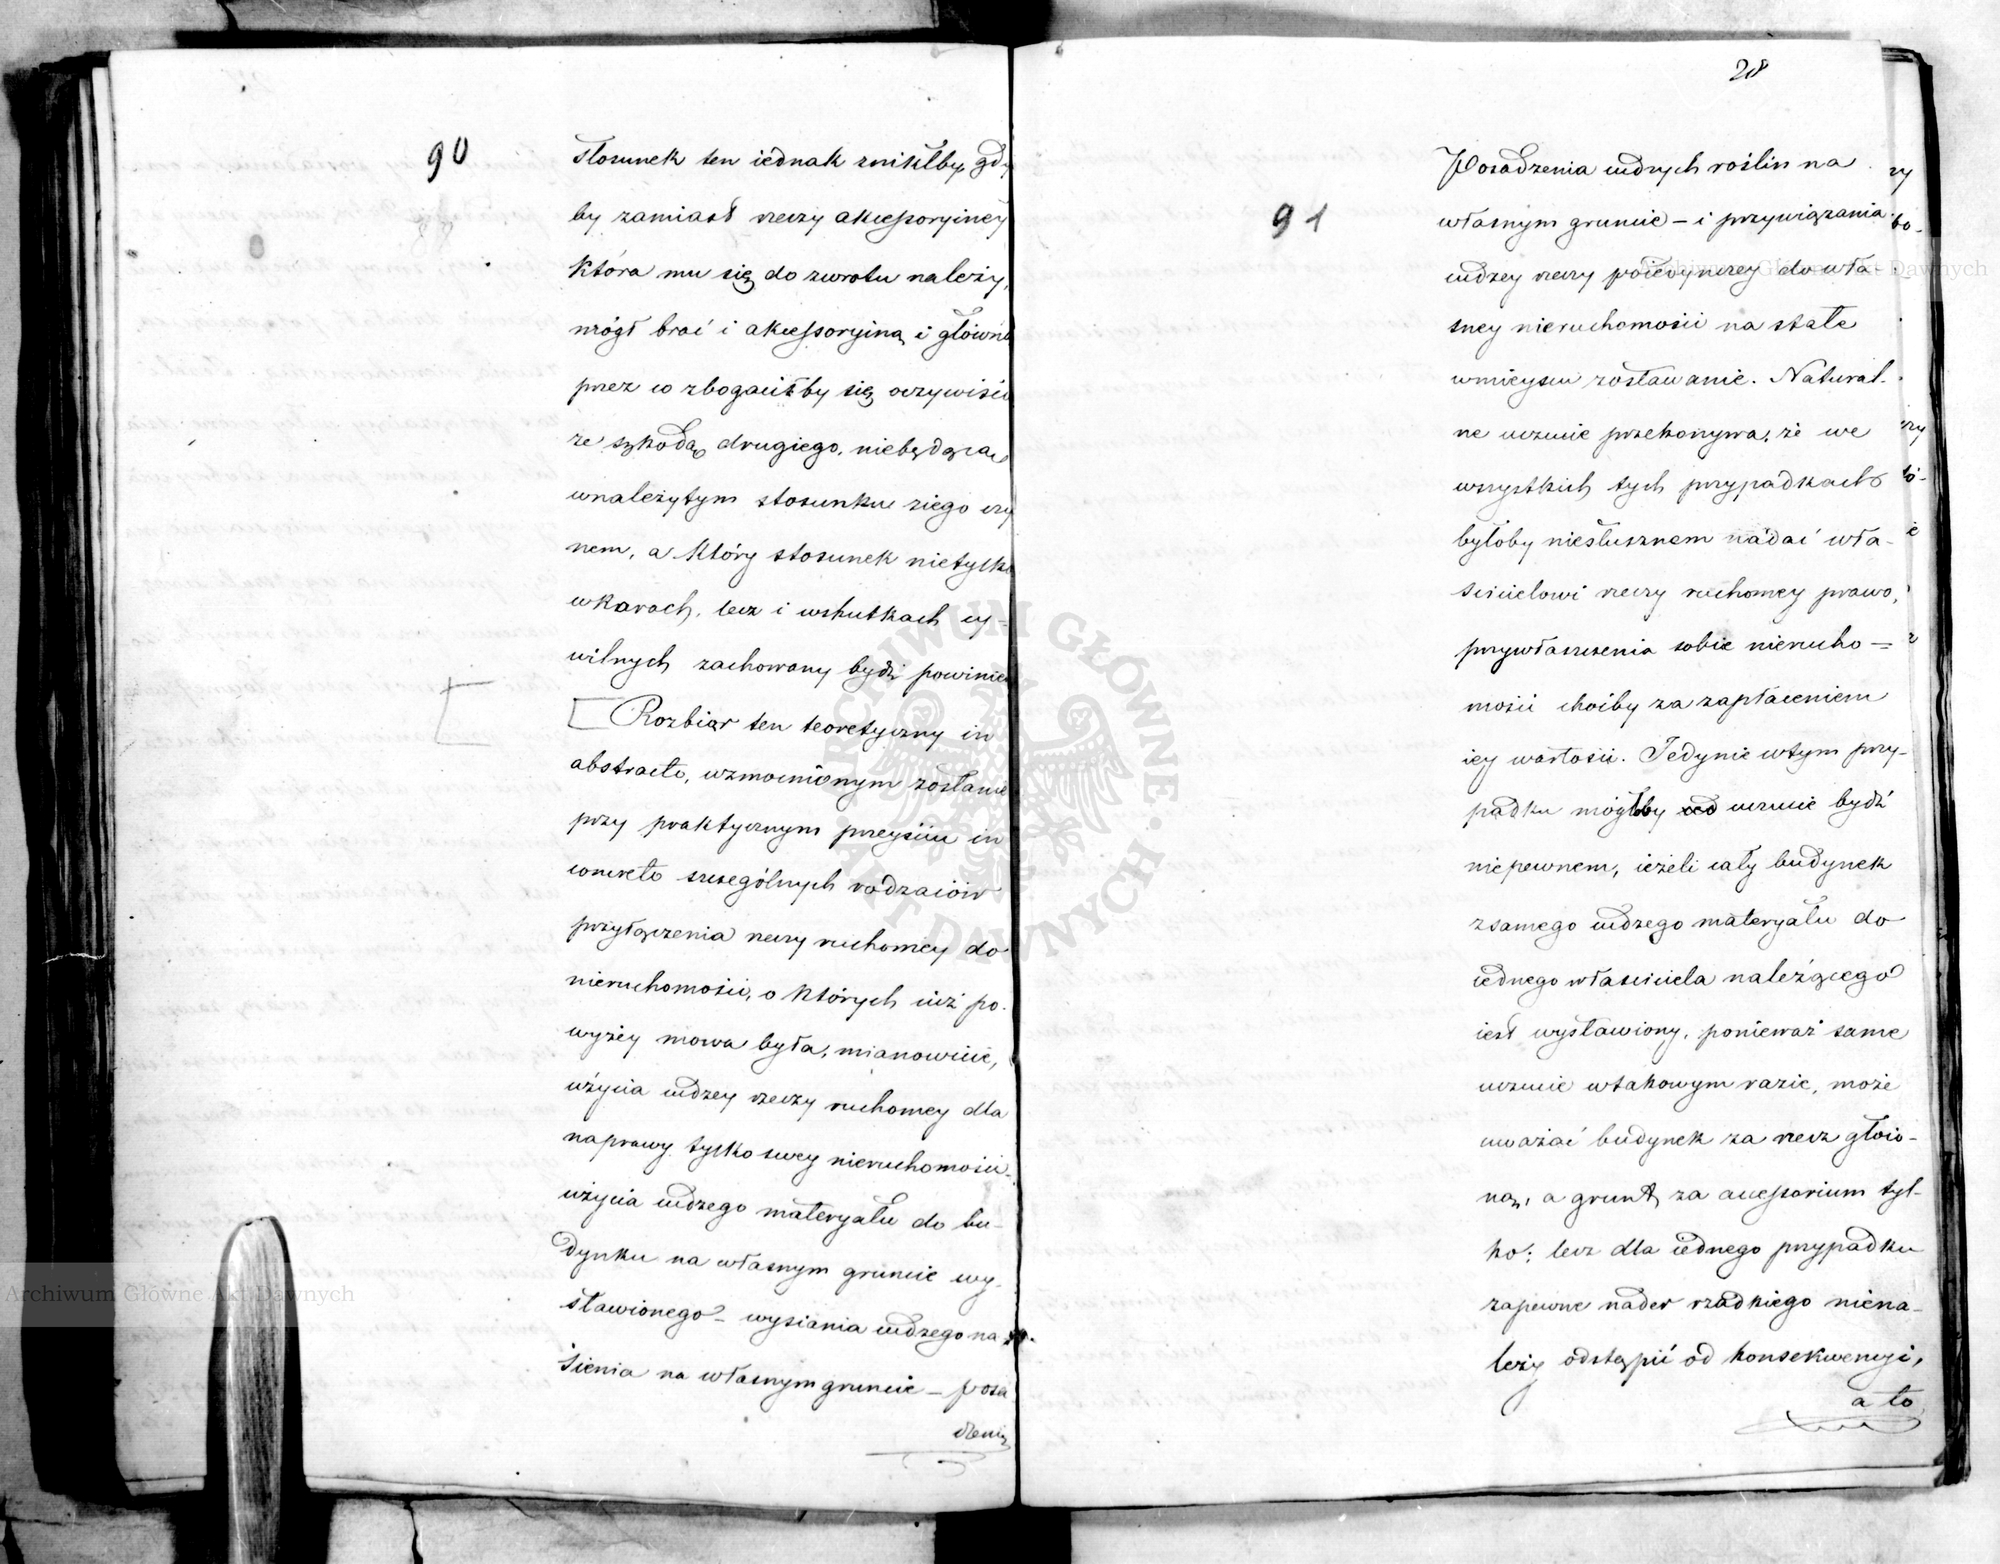 90
stosunek ten iednak znikłby, gdy
by zamiast rzeczy akcessoryiney
która mu się do zwrotu należy,
mógł brać i akcessoryiną i główną
przez co zbogaciłby się oczywiście
ze szkodą drugiego, niebędącą
wnależytym stosunku ziego czy
nem, a który stosunek nietylko
wkarach, lecz i wskutkach cy=
wilnych zachowany bydź powinien
Rozbiór ten teoretyczny in
abstracto, wzmocnionym zostanie
przy praktycznym przeyściu in
concreto szczególnych rodzaiów
przyłączenia rzeczy ruchomey do
nieruchomości, o których iuż po-
wyżey mowa była, mianowicie,
użycia cudzey rzeczy ruchomey dla
naprawy tylko swey nieruchomości-
użycia cudzego materyału do bu-
dynku na własnym gruncie wy-
stawionego - wysiania cudzego na-
sienia na własnym gruncie - posa
dzenia
28
91
Posadzenia cudzych roślin na
własnym gruncie - i przywiązania
cudzey rzeczy poiedynczey do wła-
sney nieruchomości na stałe
wmieyscu zostawanie. Natural-
ne uczucie przekonywa, że we
wszystkich tych przypadkach
byłoby niesłusznem nadać wła-
ścicielowi rzeczy ruchomey prawo,
przywłaszczenia sobie nierucho=
mości choćby za zapłaceniem
iey wartości. Jedynie wtym przy-
padku mógłby uczucie bydź
niepewnem, ieżeli cały budynek
zsamego cudzego materyału do
iednego właściciela należącego
iest wystawiony, ponieważ same
uczucie wtakowym razie, może
uważać budynek za rzecz głów-
ną, a grunt za accessorium tyl-
ko; lecz dla iednego przypadku
zapewne nader rzadkiego niena-
leży odstąpić od konsekwencyi,
a to
Archiwum Główne Akt Dawnych
Archiwum Główne Akt Dawnych
ARCHIWUM GŁÓWNE AKT DAWNYCH